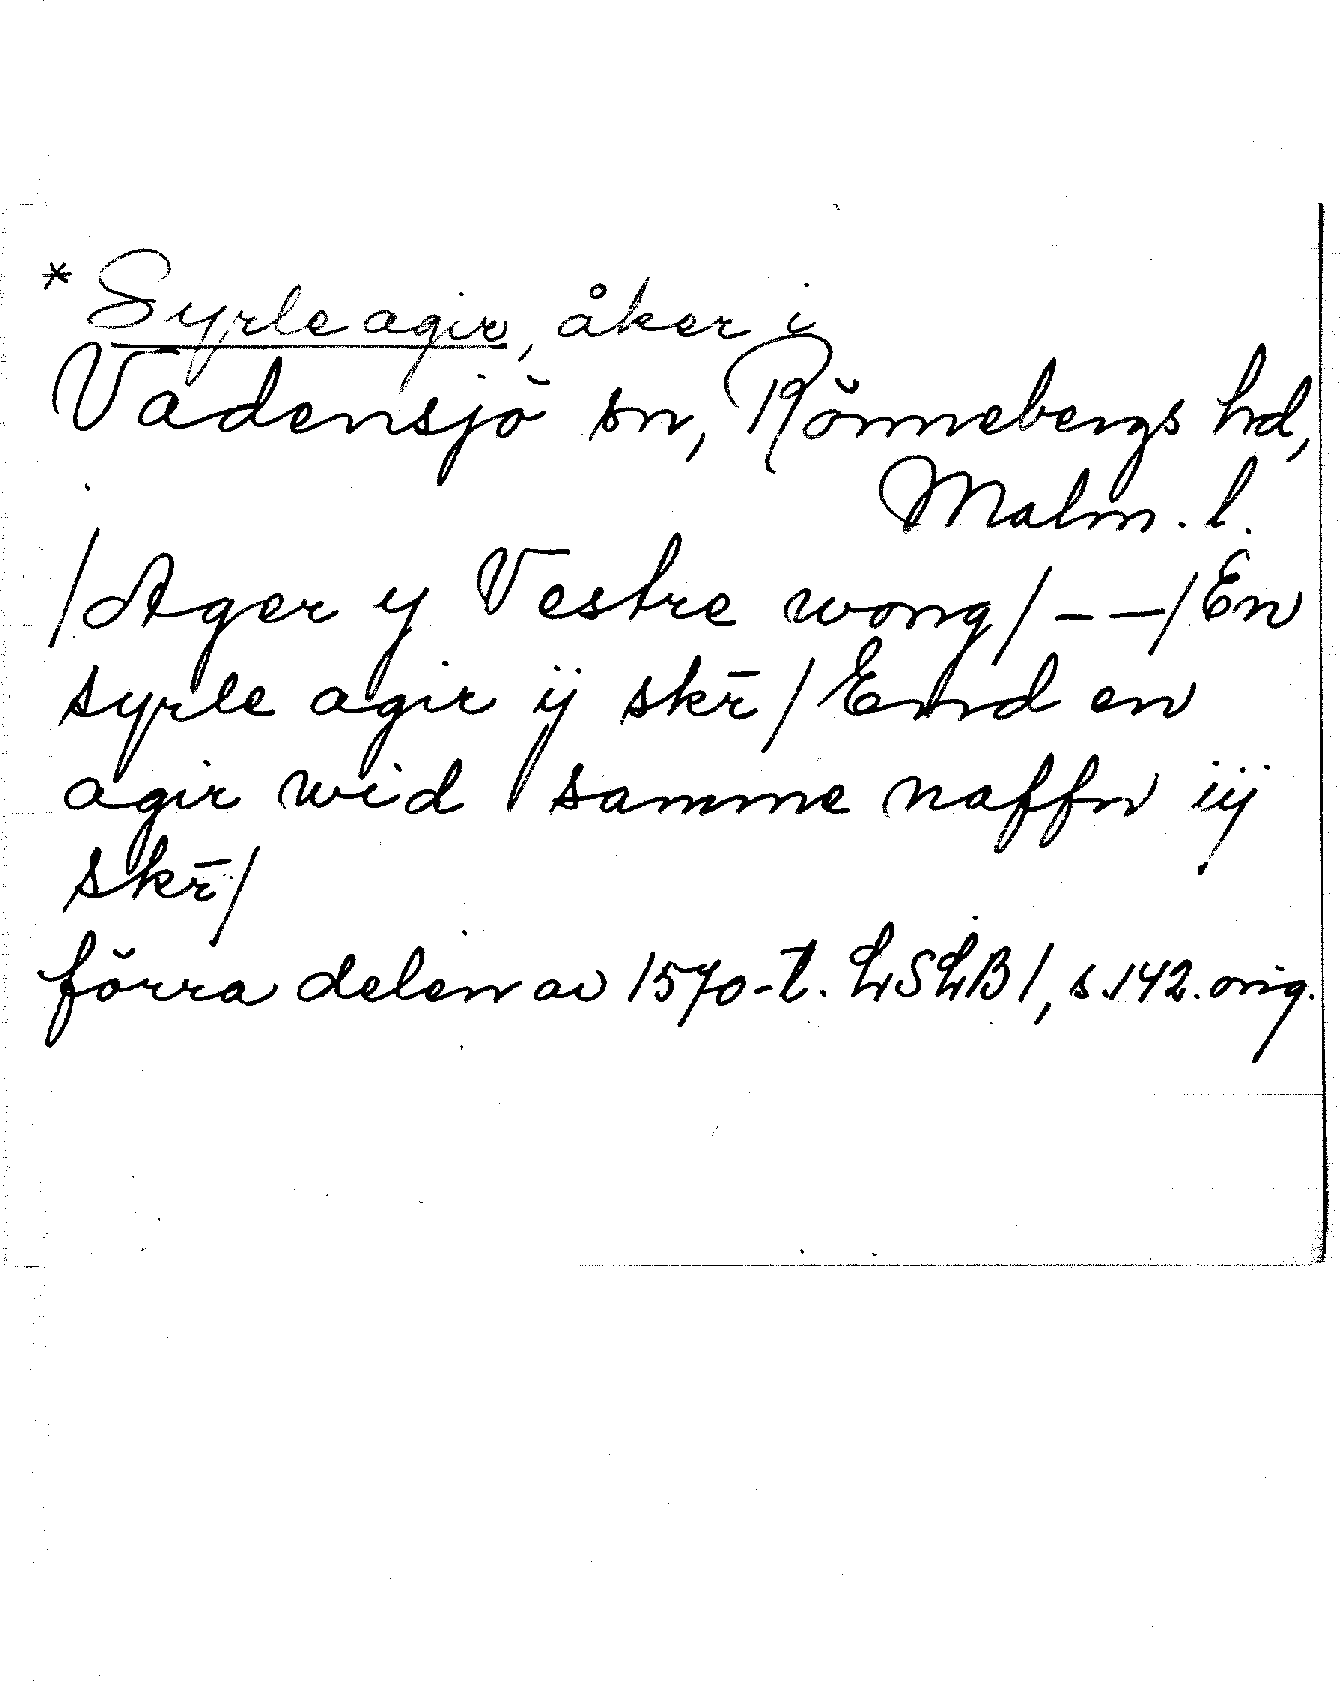 * Syrle agir, åker i
Vadensjö sn, Rönnebergs hd,
Malm. l.
/Ager y Vestre wong/ – – /En
syrle agir ij skr̄/ Ennd en
agir wid samme naffn iij
skr̄/
förra delen av 1570-t. LSLB 1, s. 142. orig.